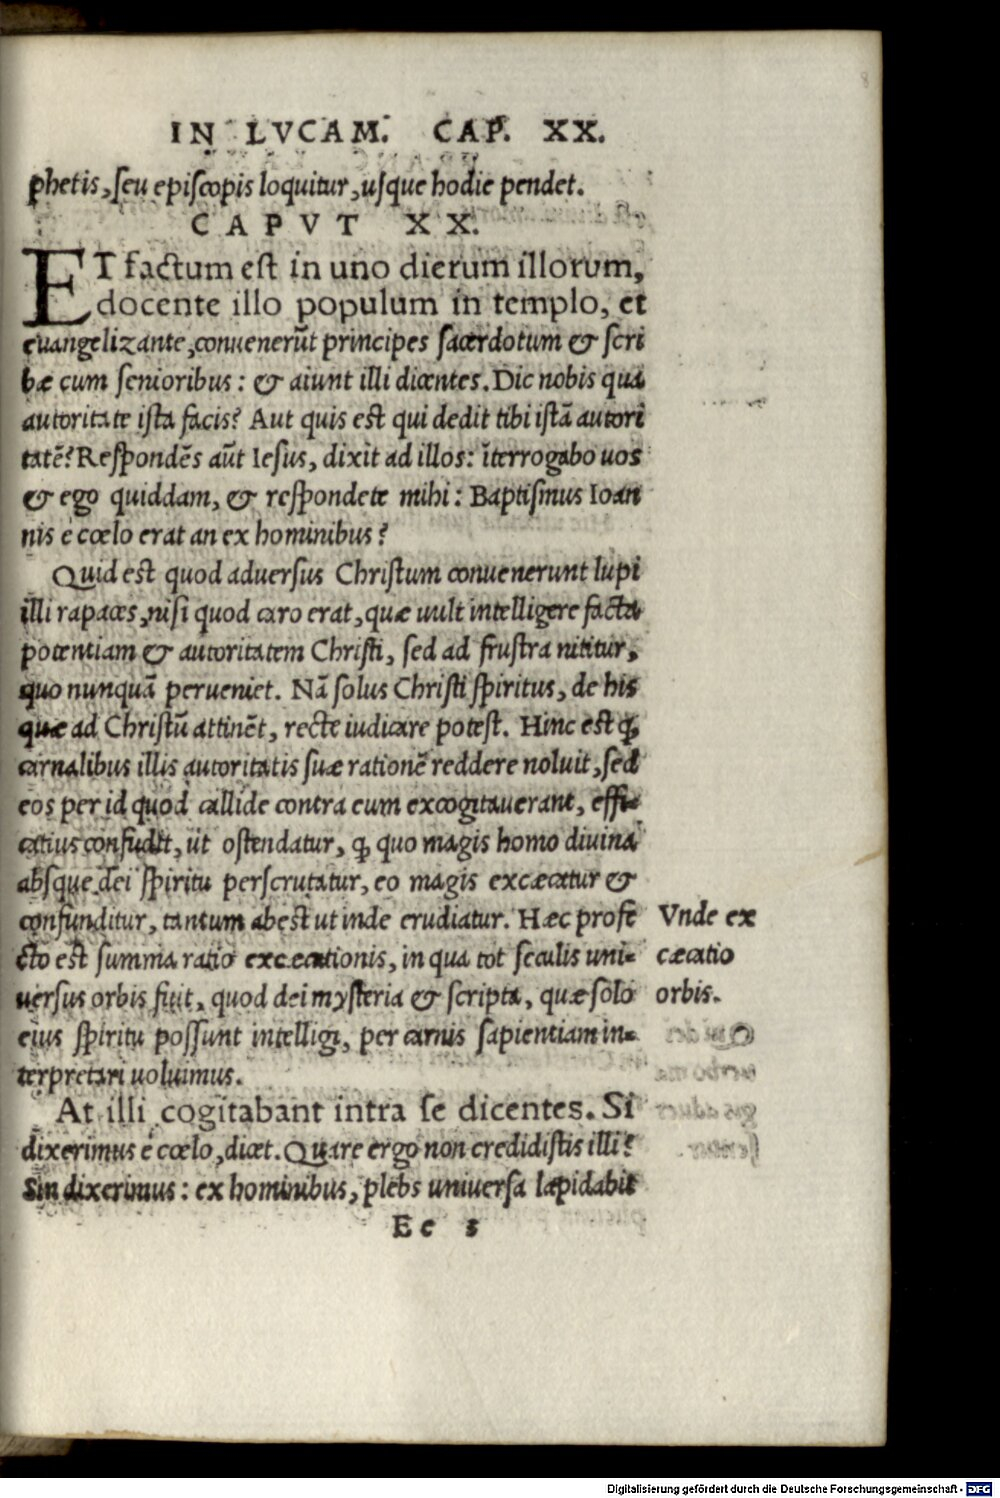 IN LVCAM. CAP. XX.
phetis, seu episcopis loquitur, usque hodie pendet.
CAPVT XX.
ET factum est in uno dierum illorum,
docente illo populum in templo, et
euangelizante, conuenerūt principes sacerdotum & scri
bæ cum senioribus: & aiunt illi dicentes. Dic nobis qua
autoritate ista facis? Aut quis est qui dedit tibi istā autori
tatē? Respondēs aūt Iesus, dixit ad illos: īterrogabo uos
& ego quiddam, & respondete mihi: Baptismus Ioan
nis è cœlo erat an ex hominibus?
Quid est quod aduersus Christum conuenerunt lupi
illi rapaces, nisi quod caro erat, quæ uult intelligere facta
potentiam & autoritatem Christi, sed ad frustra nititur,
quo nunquā perueniet. Nā solus Christi spiritus, de his
quæ ad Christū attinēt, recte iudicare potest. Hinc est ꝙ
carnalibus illis autoritatis suæ rationē reddere noluit, sed
eos per id quod callide contra eum excogitauerant, effi-
catius confudit, ut ostendatur, ꝙ quo magis homo diuina
absque dei spiritu perscrutatur, eo magis excæcatur &
confunditur, tantum abest ut inde erudiatur. Hæc profe
cto est summa ratio excæcationis, in qua tot seculis uni-
uersus orbis fuit, quod dei mysteria & scripta, quæ solo
eius spiritu possunt intelligi, per carnis sapientiam in-
terpretari uoluimus.
Vnde ex
cæcatio
orbis.
At illi cogitabant intra se dicentes. Si
dixerimus è cœlo, dicet. Quare ergo non credidistis illi?
Sin dixerimus: ex hominibus, plebs uniuersa lapidabit
Ee 5
Digitalisierung gefördert durch die Deutsche Forschungsgemeinschaft - DFG